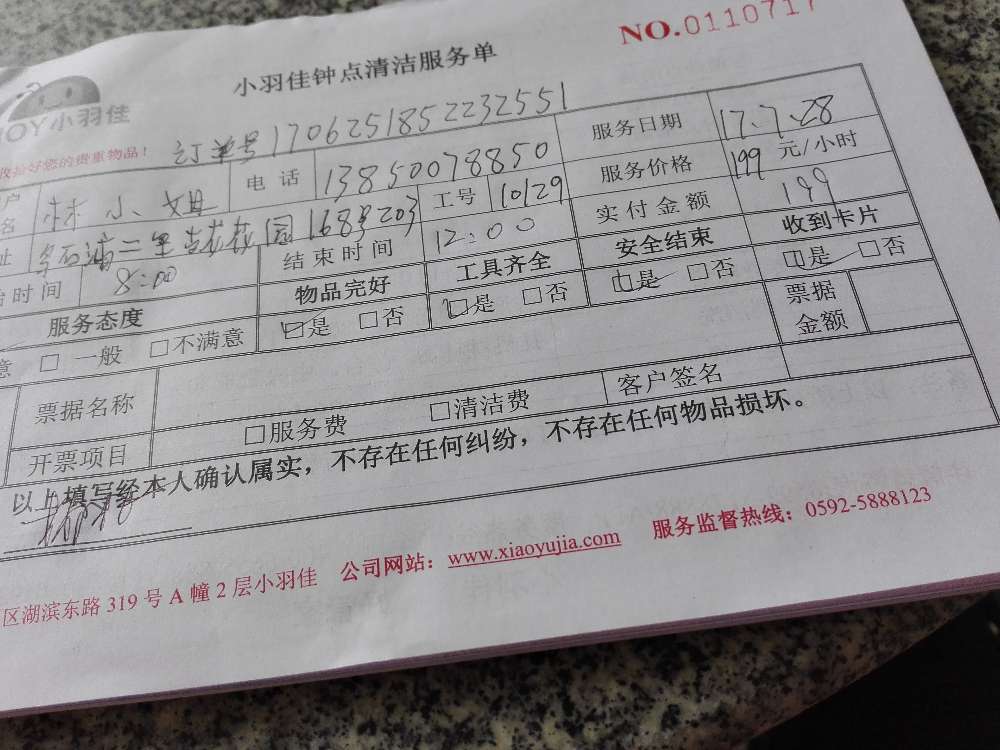 NO.0110717
小羽佳钟点清洁服务单
JOY小羽佳
收拾好您的贵重物品！ 订单号1706251852232551
户名 林小姐 电话 13850078850 服务日期 17.7.28
址 168号203 工号 10129 服务价格 199 元/小时
始时间 8:00 结束时间 12:00 实付金额 199
服务态度 物品完好 工具齐全 安全结束 收到卡片
意 □ 一般 □不满意 □是 □否 □是 □否 □是 □否 □是 □否
票据名称 票据金额
开票项目 □服务费 □清洁费 客户签名
以上填写经本人确认属实，不存在任何纠纷，不存在任何物品损坏。
区湖滨东路 319 号 A 幢 2 层小羽佳 公司网站：www.xiaoyujia.com 服务监督热线：0592-5888123